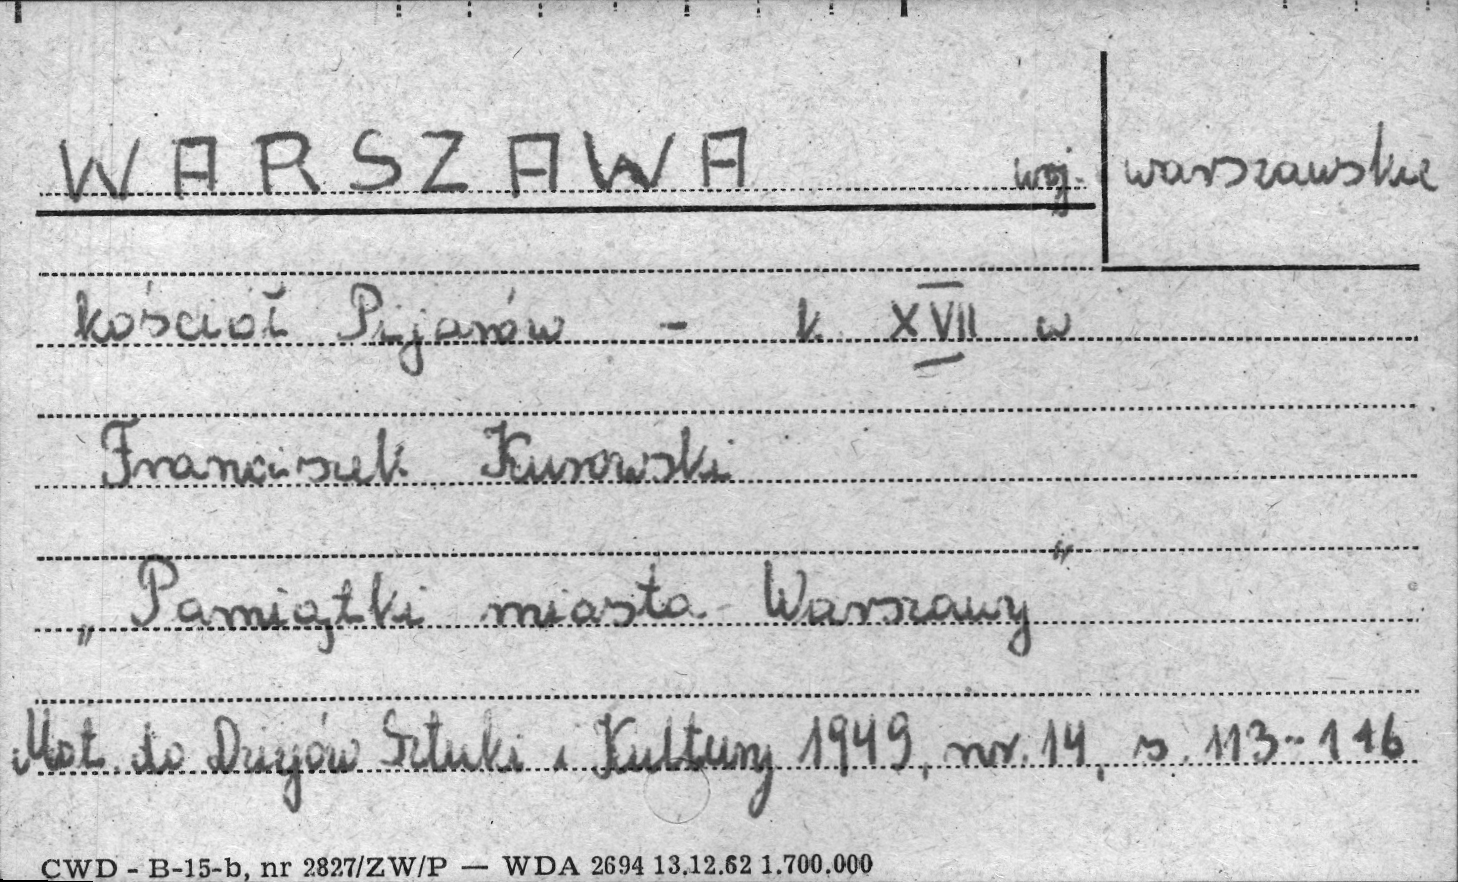 WARSZAWA woj. warszawskie
kościół Pijarów - k. XVII w
Franciszek Kurowski
„Pamiątki miasta Warszawy"
Mat. do Dziejów Sztuki i Kultury 1949, nr. 14, s. 113-116
CWD - B-15-b, nr 2827/ZW/P — WDA 2694 13.12.62 1.700.000